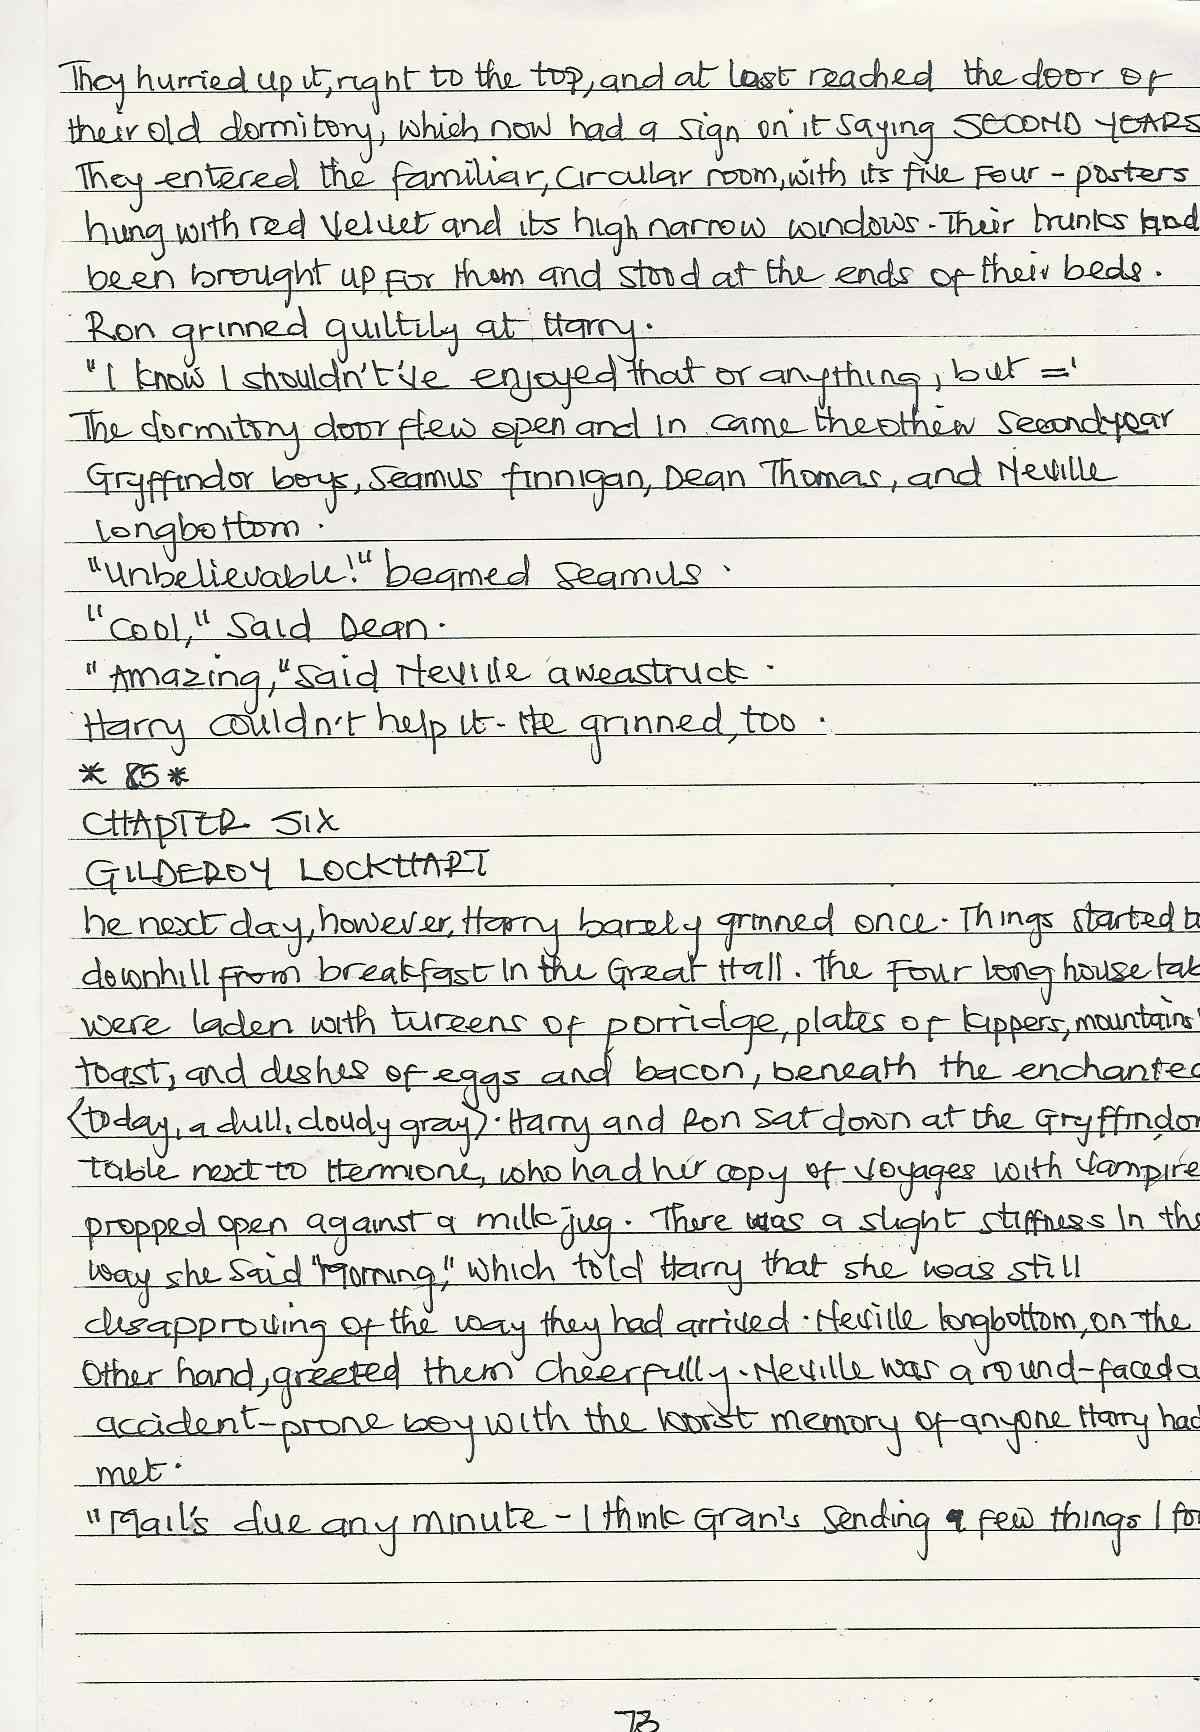 They hurried up it, right to the top, and at last reached the door of
their old dormitory, which now had a sign on it saying SECOND YEARS
They entered the familiar, circular room, with its five four - posters
hung with red velvet and its high narrow windows. Their trunks had
been brought up for them and stood at the ends of their beds.
Ron grinned guiltily at Harry.
"I know I shouldn't've enjoyed that or anything, but ='
The dormitory door flew open and in came the other second year
Gryffindor boys, Seamus finnigan, Dean Thomas, and Neville
longbottom.
"unbelievable!" beamed Seamus.
"Cool," Said Dean.
"Amazing," Said Neville aweastruck.
Harry couldn't help it. He grinned, too.
* 85 *
CHAPTER SIX
GILDEROY LOCKHART
he next day, however, Harry barely grinned once. Things started
downhill from breakfast in the Great Hall. The four long house tab
were laden with tureens of porridge, plates of kippers, mountains
toast, and dishes of eggs and bacon, beneath the enchanted
(today, a dull, cloudy gray). Harry and Ron sat down at the Gryffindor
table next to Hermione, who had her copy of Voyages with Vampire
propped open against a milk jug. There was a slight stiffness in the
way she said "Morning," which told Harry that she was still
disapproving of the way they had arrived. Neville longbottom, on the
other hand, greeted them cheerfully. Neville was a round-faced a
accident-prone boy with the worst memory of anyone Harry had
met.
"Mail's due any minute - I think Gran's sending a few things I for
73